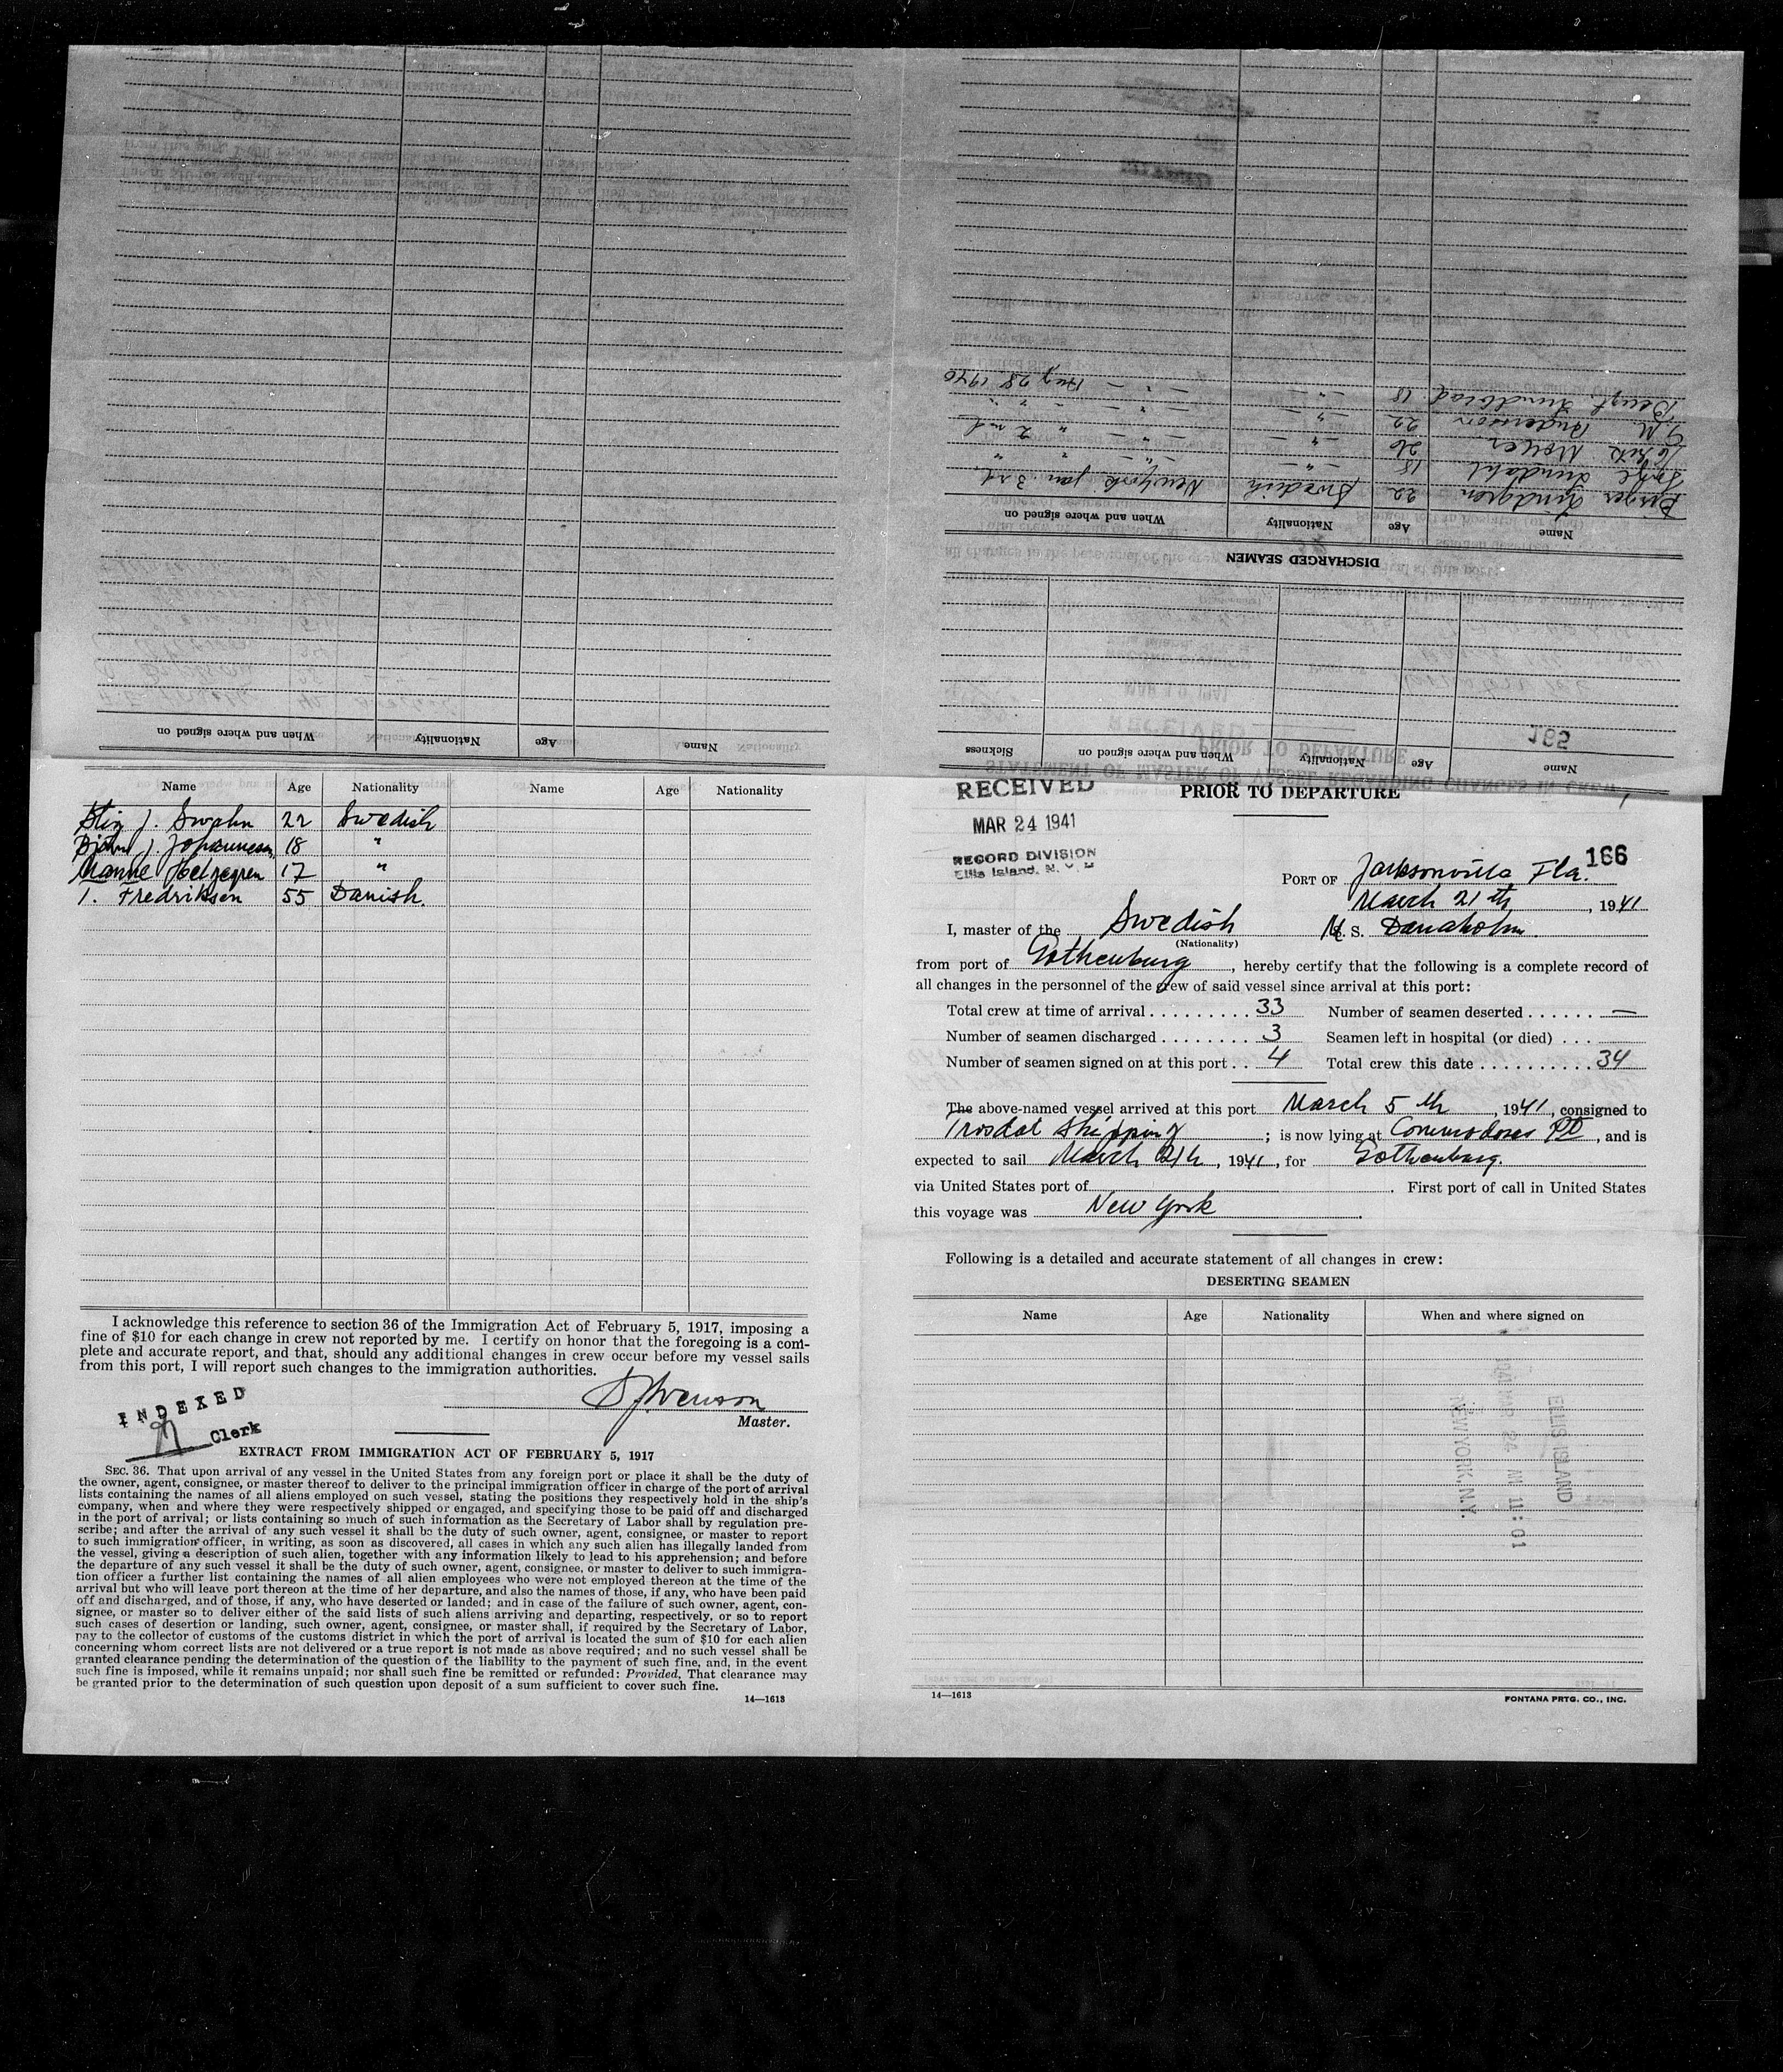 When and where signed on Nationality Age Name
Name Age Nationality When and where signed on Sickness
165
DISCHARGED SEAMEN
Name Age Nationality When and where signed on
Birger Lindgren 22 Swedish New York Jan. 3rd
Lundahl 18 " "
Moller 26 " " 2nd
G. M. Anderson 22 " "
Bengt Lundblad 18 " Aug 28 1940
Name Age Nationality Name Age Nationality
Stig J. Swahn 22 Swedish
Björn J. Johannesen 18 "
Manne Helzegren 17 "
I. Fredriksen 55 Danish.
I acknowledge this reference to section 36 of the Immigration Act of February 5, 1917, imposing a
fine of $10 for each change in crew not reported by me. I certify on honor that the foregoing is a com-
plete and accurate report, and that, should any additional changes in crew occur before my vessel sails
from this port, I will report such changes to the immigration authorities.
Master.
INDEXED
Clerk
EXTRACT FROM IMMIGRATION ACT OF FEBRUARY 5, 1917
SEC. 36. That upon arrival of any vessel in the United States from any foreign port or place it shall be the duty of
the owner, agent, consignee, or master thereof to deliver to the principal immigration officer in charge of the port of arrival
lists containing the names of all aliens employed on such vessel, stating the positions they respectively hold in the ship's
company, when and where they were respectively shipped or engaged, and specifying those to be paid off and discharged
in the port of arrival; or lists containing so much of such information as the Secretary of Labor shall by regulation pre-
scribe; and after the arrival of any such vessel it shall be the duty of such owner, agent, consignee, or master to report
to such immigration officer, in writing, as soon as discovered, all cases in which any such alien has illegally landed from
the vessel, giving a description of such alien, together with any information likely to lead to his apprehension; and before
the departure of any such vessel it shall be the duty of such owner, agent, consignee, or master to deliver to such immigra-
tion officer a further list containing the names of all alien employees who were not employed thereon at the time of the
arrival but who will leave port thereon at the time of her departure, and also the names of those, if any, who have been paid
off and discharged, and of those, if any, who have deserted or landed; and in case of the failure of such owner, agent, con-
signee, or master so to deliver either of the said lists of such aliens arriving and departing, respectively, or so to report
such cases of desertion or landing, such owner, agent, consignee, or master shall, if required by the Secretary of Labor,
pay to the collector of customs of the customs district in which the port of arrival is located the sum of $10 for each alien
concerning whom correct lists are not delivered or a true report is not made as above required; and no such vessel shall be
granted clearance pending the determination of the question of the liability to the payment of such fine, and, in the event
such fine is imposed, while it remains unpaid; nor shall such fine be remitted or refunded: Provided, That clearance may
be granted prior to the determination of such question upon deposit of a sum sufficient to cover such fine.
14—1613
RECEIVED
MAR 24 1941
RECORD DIVISION
Ellis Island, N.
PRIOR TO DEPARTURE
166
PORT OF Jacksonville Fla.
March 21th, 1941
I, master of the Swedish M. S. Danaholm.
(Nationality)
from port of Gothenburg, hereby certify that the following is a complete record of
all changes in the personnel of the crew of said vessel since arrival at this port:
Total crew at time of arrival . . . . . . . . . 33 Number of seamen deserted . . . . . . —
Number of seamen discharged . . . . . . . . 3 Seamen left in hospital (or died) . . . —
Number of seamen signed on at this port . . 4 Total crew this date . . . . . . . . . . 34
The above-named vessel arrived at this port March 5th, 1941, consigned to
Trosdal Shipping; is now lying at Commodores Pt, and is
expected to sail March 21th, 1941, for Gothenburg.
via United States port of . First port of call in United States
this voyage was New York.
Following is a detailed and accurate statement of all changes in crew:
DESERTING SEAMEN
Name Age Nationality When and where signed on
ELLIS ISLAND
1941 MAR 24 AM 11: 01
NEW YORK, N.Y.
14—1613
FONTANA PRTG. CO., INC.